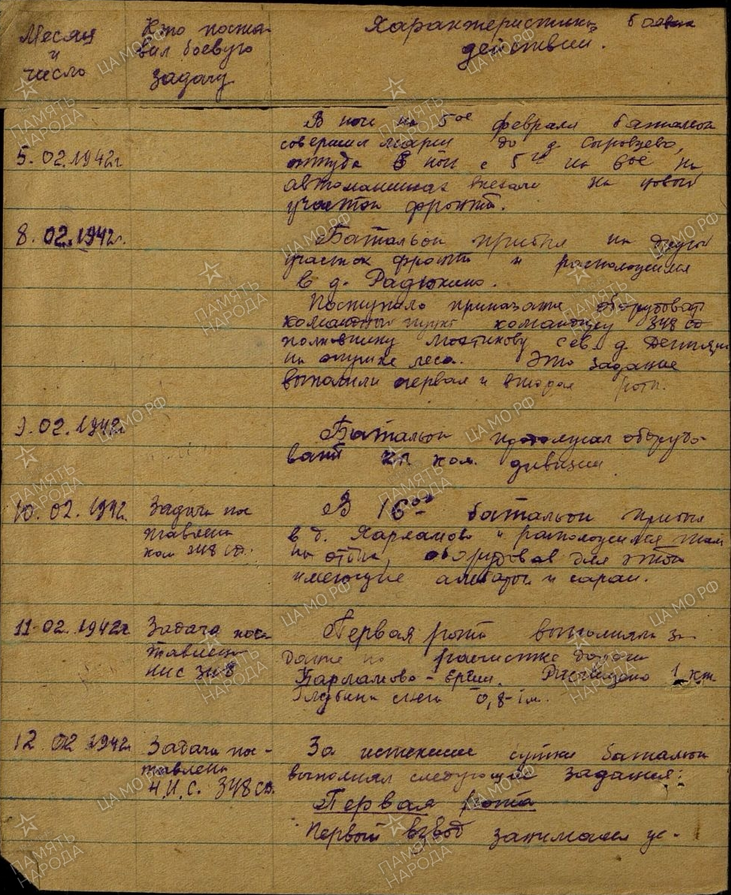 Месяц и число
Кто поста-
вил боевую
задачу
Характеристика боевых
действий.
5.02.1942г.
В ночь на 5ое февраля батальон
совершил марш до д. Сыровцево,
оттуда в ночь с 5го на 6ое на
автомашинах выехали на новый
участок фронта.
8.02.1942г.
Батальон прибыл на другой
участок фронта и расположился
в д. Радюкино.
Поступило приказание оборудовать
командный пункт командиру 348 сд
полковнику сев. д.
на опушке леса. Это задание
выполнили первая и вторая роты.
9.02.1942г.
Батальон продолжал оборудо-
вать кп ком. дивизии.
10.02.1942
Задача по-
ставлена
ком 348 сд.
В 16оо батальон прибыл
в д. Харламово и расположился там
на отдых, оборудовав для этой
имеющие амбары и сараи.
11.02.1942г
Задача пос-
тавлена
НИС 348
Первая рота выполняла за-
дание по расчистке дороги
Харламово - Расчищено 1 км
Глубина снега 0,8-1 м.
12.02.1942г
Задача пос-
тавлена
Н.И.С. 348 сд.
За истекшие сутки батальон
выполнял следующие задания:
Первая рота
Первый взвод занимался ус-
ПАМЯТЬ
НАРОДА
ЦАМО.РФ